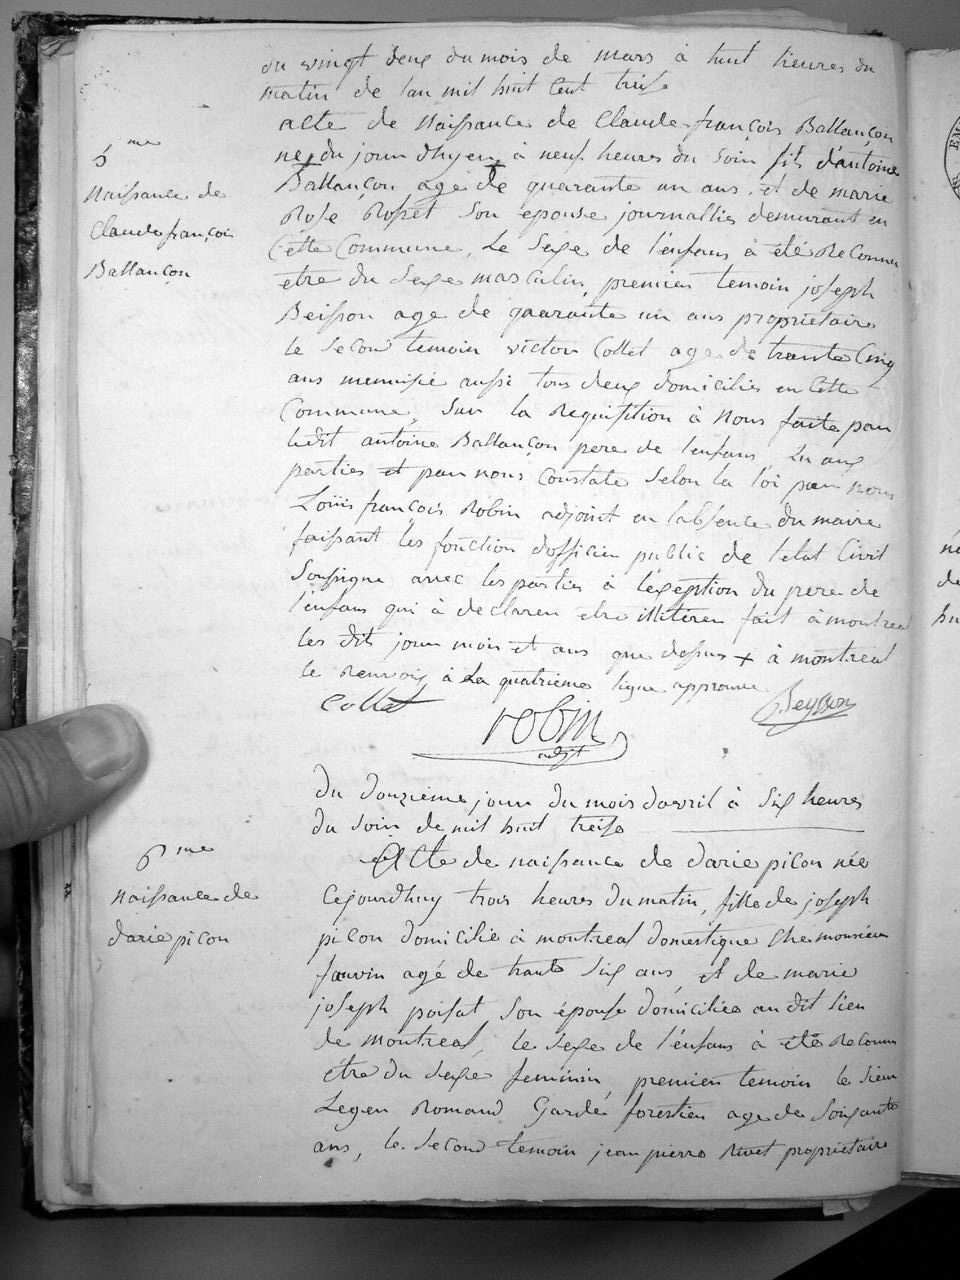 du vingt deux du mois de mars à huit heures du
matin de lan mil huit cent treise
5me
Naissance de
Claude françois
Ballançon
acte de Naissance de Claude françois Ballançon
né du jour dhyer à neuf heures du soir fils d'antoine
Ballançon age de quarante un ans et de marie
Rose Roset son epouse journallies demurant en
Cette Commune, Le Sexe de l'enfans à été Reconnu
etre du Sexe masculin, premier temoin joseph
Beisson age de quarante un ans proprietaire
le second temoin victor Collet age de trante Cinq
ans menuisié aussi tous deux domiciliés en Cette
Commune, Sur la Requisition à nous faite par
ledit antoine Ballançon pere de l'enfans Lu aux
parties et par nous Constaté Selon la loi par nous
Loüis françois Robin adjoint en l'absence du maire
faissant les fonction d'officier public de l'etat Civil
Soussigné avec les parties à l'exeption du pere de
l'enfans qui à declarer etre illitéré fait à montreal
les dits jour mois et ans que dessus + à montreal
le Renvoiy à La quatrième ligne approuvé
Collet
robin
adjt
Beysson
Du douzième jour du mois d'avril à Six heures
du soir de mil huit treise
6me
Naissance de
darie picon
Acte de naissance de darie picon née
Cejourdhuy trois heures du matin, fille de joseph
picon domicilié à montreal domestique che monsieur
fauvin agé de trante Six ans et de marie
joseph poisat Son épouse domiciliée au dit lieu
de montreal, le Sexe de l'enfans à été Reconnu
être du Sexe feminin, premier temoin le Sieur
Leger Romand Garde forestier age de Soixante
ans, le Second temoin jean pierre Rivet proprietaire